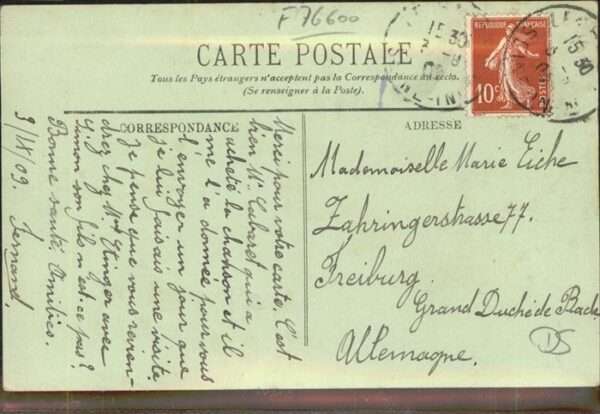 F 76600
CARTE POSTALE
Tous les Pays étrangers n'acceptent pas la Correspondance au recto.
(Se renseigner à la Poste).
REPUBLIQUE FRANÇAISE
10c
15 30
15 30
CORRESPONDANCE
ADRESSE
Merci pour votre carte. C'est
bien Mr Cabaret qui a
acheté la chanson et il
me l'a donnée pour vous
l'envoyer un jour que
je lui faisais une visite.
Je pense que vous revien-
drez chez Mme Etinger avec
Simon son fils n'est-ce pas?
Bonne santé. Amitiés.
9/IX/09. Fernand.
Mademoiselle Marie Eiche
Zahringerstrasse 77.
Freiburg
Grand Duché de Bade
Allemagne.
DS